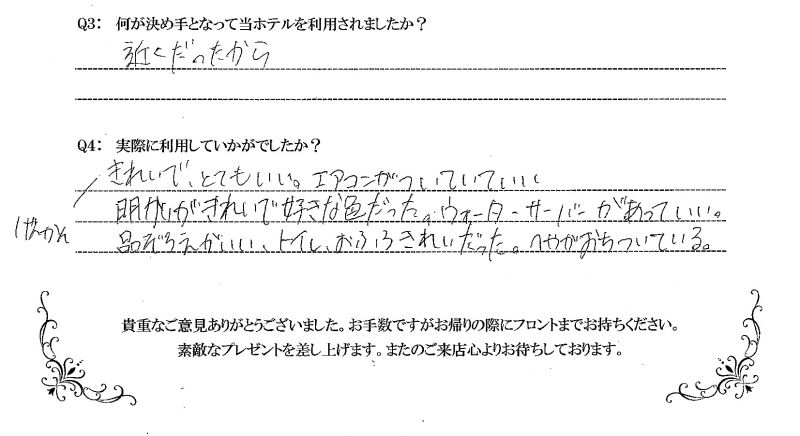 Q3： 何が決め手となって当ホテルを利用されましたか？
近くだったから
Q4： 実際に利用していかがでしたか？
きれいで、とてもいい。エアコンがついていていい
明かりがきれいで好きな色だった。ウォーターサーバーがあっていい。
げんかん
品ぞろえがいい、トイレ、おふろきれいだった。へやがおちついている。
貴重なご意見ありがとうございました。お手数ですがお帰りの際にフロントまでお持ちください。
素敵なプレゼントを差し上げます。またのご来店心よりお待ちしております。